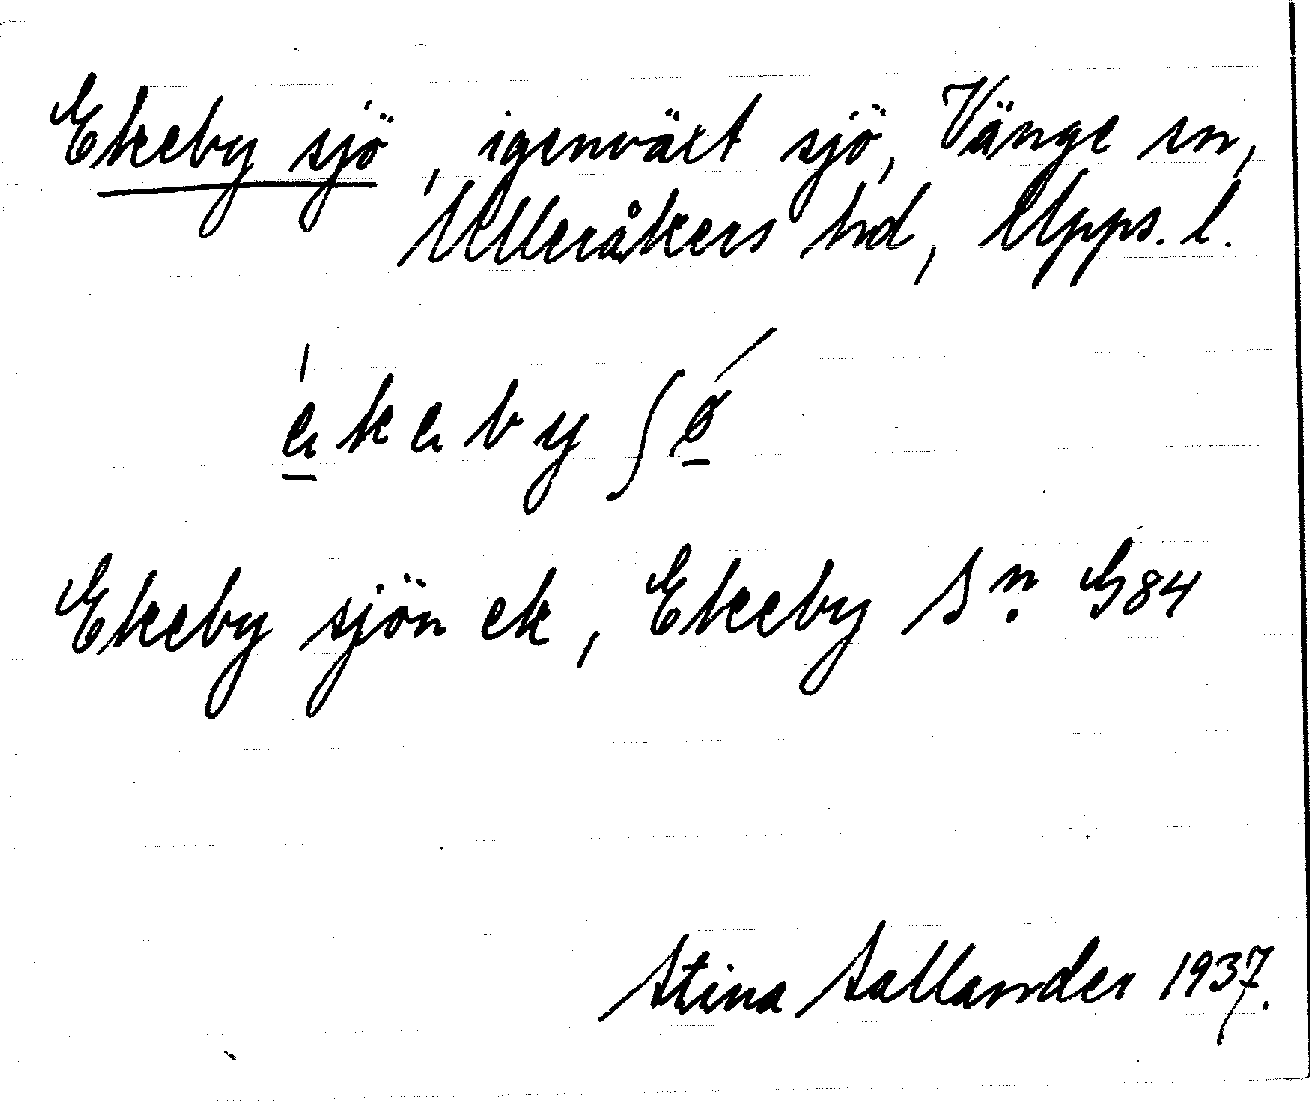 Ekeby sjö, igenväxt sjö, Vänge sn,
Ulleråkers hd, Upps. l.
Ekeby sjön ek, Ekeby Sn G84
Stina Sallander 1937.